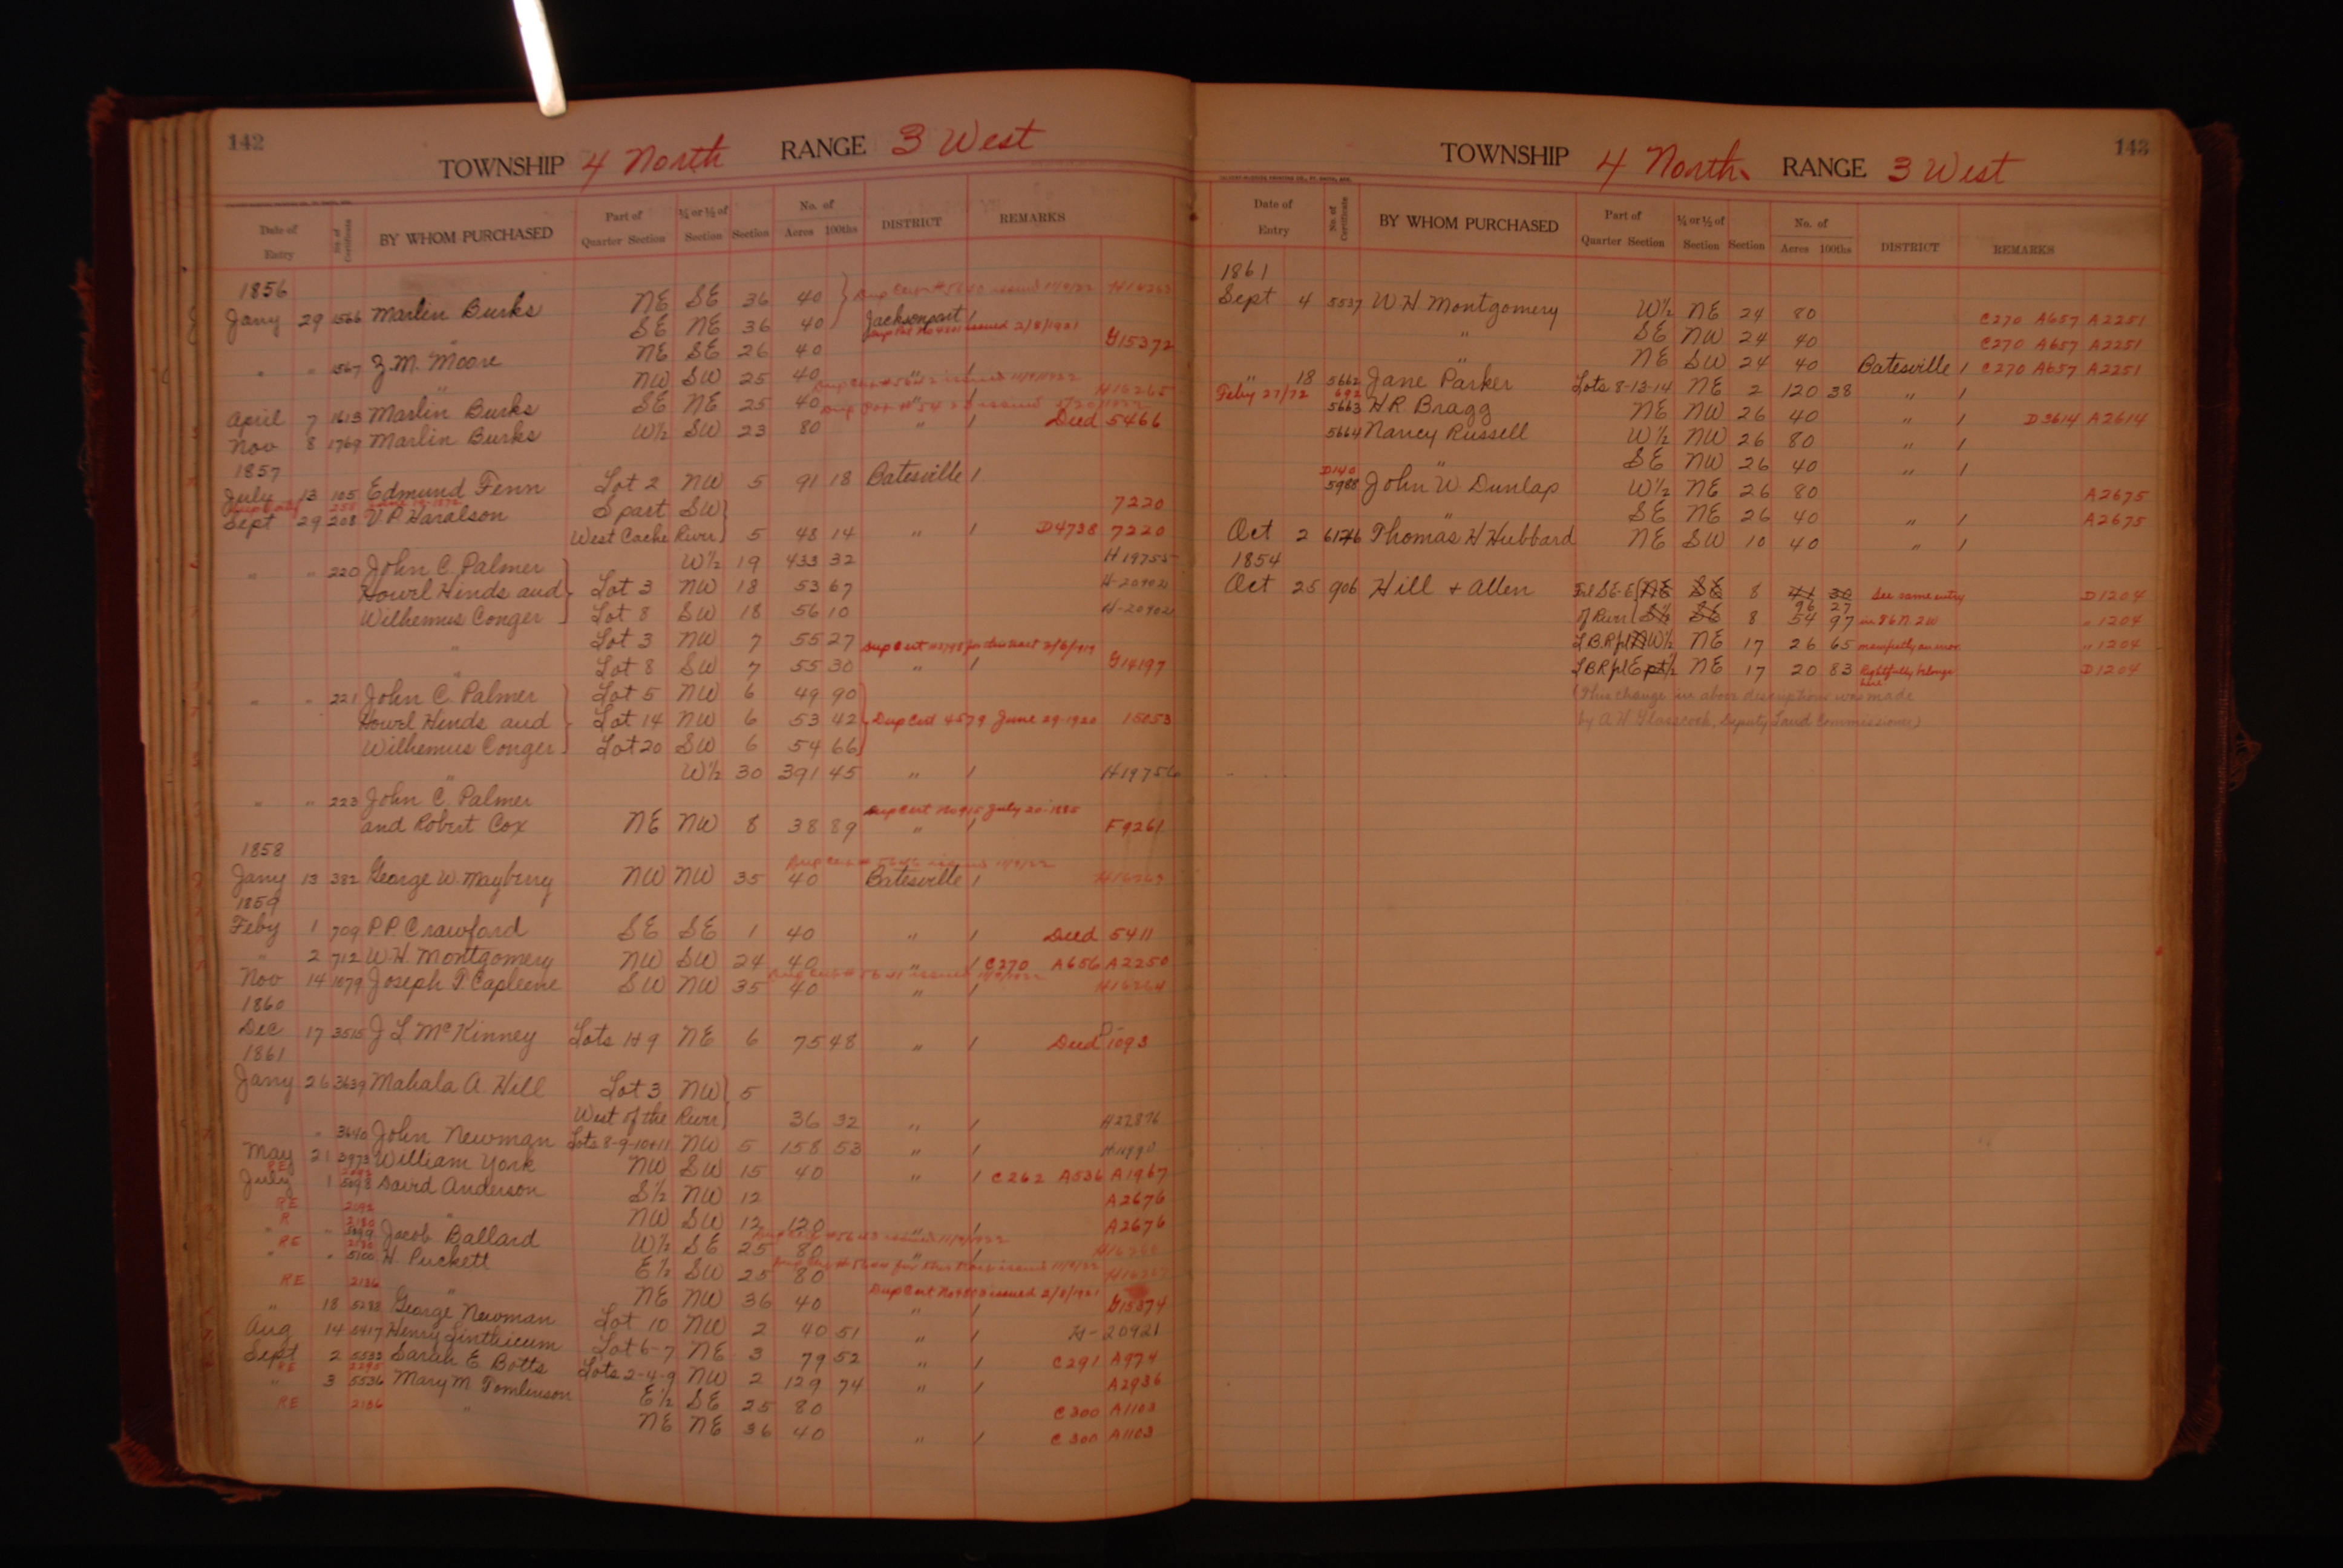 142
TOWNSHIP 4 North RANGE 3 West
Date of Entry No. of Certificate BY WHOM PURCHASED Part of Quarter Section ¼ or ½ of Section Section No. of Acres 100ths DISTRICT REMARKS
1856
Dup Cert # issued 11/9/22
Jany 29 1566 Marlin Burks NE SE 36 40
" SE NE 36 40 Jacksonport /
Dup Cert No issued 2/8/1921
" " 1567 Z.M. Moore NE SE 26 40 G15372
" NW SW 25 40 " /
Dup Cert # 5642 issued 11/9/1922
April 7 1613 Marlin Burks SE NE 25 40 " / H16265
Nov 8 1769 Marlin Burks W½ SW 23 80 " / Deed 5466
1857
July 13 105 Edmund Fenn Lot 2 NW 5 91 18 Batesville /
Sept 29 208 V.P. Haralson S part SW 7220
West Cache River 5 48 14 " / D4738 7220
" " 220 John C. Palmer W½ 19 433 32 H19755
Howel Hinds and Lot 3 NW 18 53 67 H-20902
Wilhemus Conger Lot 8 SW 18 56 10 H-20902
" Lot 3 NW 7 55 27
Dup Cert for this tract 3/6/1919
Lot 8 SW 7 55 30 " / G14197
" " 221 John C. Palmer Lot 5 NW 6 49 90
Howel Hinds and Lot 14 NW 6 53 42 Dup Cert 4579 June 29-1920 15053
Wilhemus Conger Lot 20 SW 6 54 66
" W½ 30 391 45 " / H19756
" " 223 John C. Palmer
Dup Cert No 915 July 20-1885
and Robert Cox NE NW 8 38 89 " / F9261
1858
Dup Cert # 5646 issued 11/9/22
Jany 13 382 George W. Mayberry NW NW 35 40 Batesville / H16269
1859
Feby 1 709 P.P. Crawford SE SE 1 40 " / Deed 5411
" 2 712 W.H. Montgomery NW SW 24 40 " / C270 A656 A2250
Dup Cert # issued 11/9/1922
Nov 14 1079 Joseph T. Capleene SW NW 35 40 " / H16264
1860
Dec 17 3515 J L McKinney Lots 1+9 NE 6 75 48 " / Deed 1093
1861
Jany 26 3639 Mahala A. Hill Lot 3 NW 5
West of the River 36 32 " / H22876
" 3640 John Newman Lots 8-9-10+11 NW 5 158 53 " /
May 21 3973 William York NW SW 15 40 " / C262 A536 A1967
RE 2092
July 1 5098 David Anderson S½ NW 12 A2676
RE 2092 " NW SW 12 120 " / A2676
R 2180
" " 5099 Jacob Ballard W½ SE 25 80 " /
Dup Cert #5643 issued 11/9/1922
RE 2180
" " 5100 H. Puckett E½ SW 25 80 H16267
Dup Cert # for this tract issued 11/9/22
RE 2136 " NE NW 36 40 " / G15374
Dup Cert No issued 2/8/1921
" 18 5233 George Newman Lot 10 NW 2 40 51 " / H-20921
Aug 14 5417 Henry Linthicum Lot 6-7 NE 3 79 52 " / C291 A974
Sept 2 5533 Sarah E. Botts Lots 2-4-9 NW 2 129 74 " / A2936
RE 2295
" 3 5536 Mary M Tomlinson E½ SE 25 80 C300 A1103
RE 2136 " NE NE 36 40 " / C300 A1103
143
TOWNSHIP 4 North RANGE 3 West
Date of Entry No. of Certificate BY WHOM PURCHASED Part of Quarter Section ¼ or ½ of Section Section No. of Acres 100ths DISTRICT REMARKS
1861
Sept 4 5537 W.H. Montgomery W½ NE 24 80 C270 A657 A2251
" SE NW 24 40 C270 A657 A2251
" NE SW 24 40 Batesville / C270 A657 A2251
" 18 5662 Jane Parker Lots 8-13-14 NE 2 120 38 " /
Feby 27/72 692
5663 H.R. Bragg NE NW 26 40 " / D3614 A2614
5664 Nancy Russell W½ NW 26 80 " /
" SE NW 26 40 " /
D140
5988 John W. Dunlap W½ NE 26 80 A2675
" SE NE 26 40 " / A2675
Oct 2 6126 Thomas H Hubbard NE SW 10 40 " /
1854
Oct 25 906 Hill + Allen Frl SE-E NE SE 8 41 30 See same entry D1204
96 27
of River S½ SE 8 54 97 in S6N. 2W " 1204
L.B.R frl NW½ NE 17 26 65 manifestly an error " 1204
LBR frl E pt ½ NE 17 20 83 Rightfully belongs here D1204
(This change in above descriptions was made
by A W Glasscock, Deputy Land Commissioner)